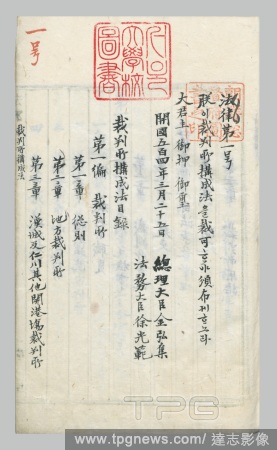 一号
法律第一号
朕이裁判所構成法을裁可하야頒布하노라
大君主 御押 御璽
開國五百四年三月二十五日
總理大臣 金弘集
法務大臣 徐光範
裁判所構成法目錄
第一編 裁判所
第一章 總則
第二章 地方裁判所
第三章 漢城及仁川其他開港場裁判所
裁判所構成法
圖書
TPG
www.tpgnews.com / 達志影像